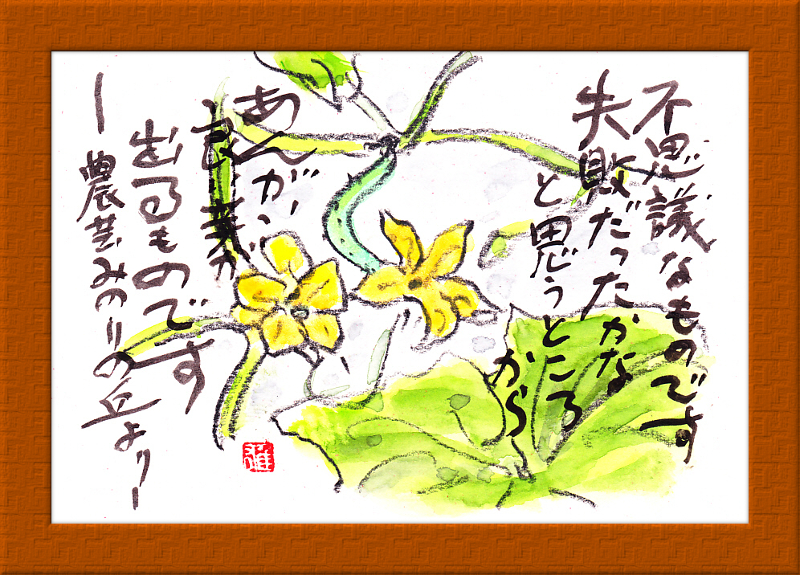 不思議なものです
失敗だったかな
と思うところ
から
あんがい
良
出るものです
ー農芸みのりの丘よりー
雅